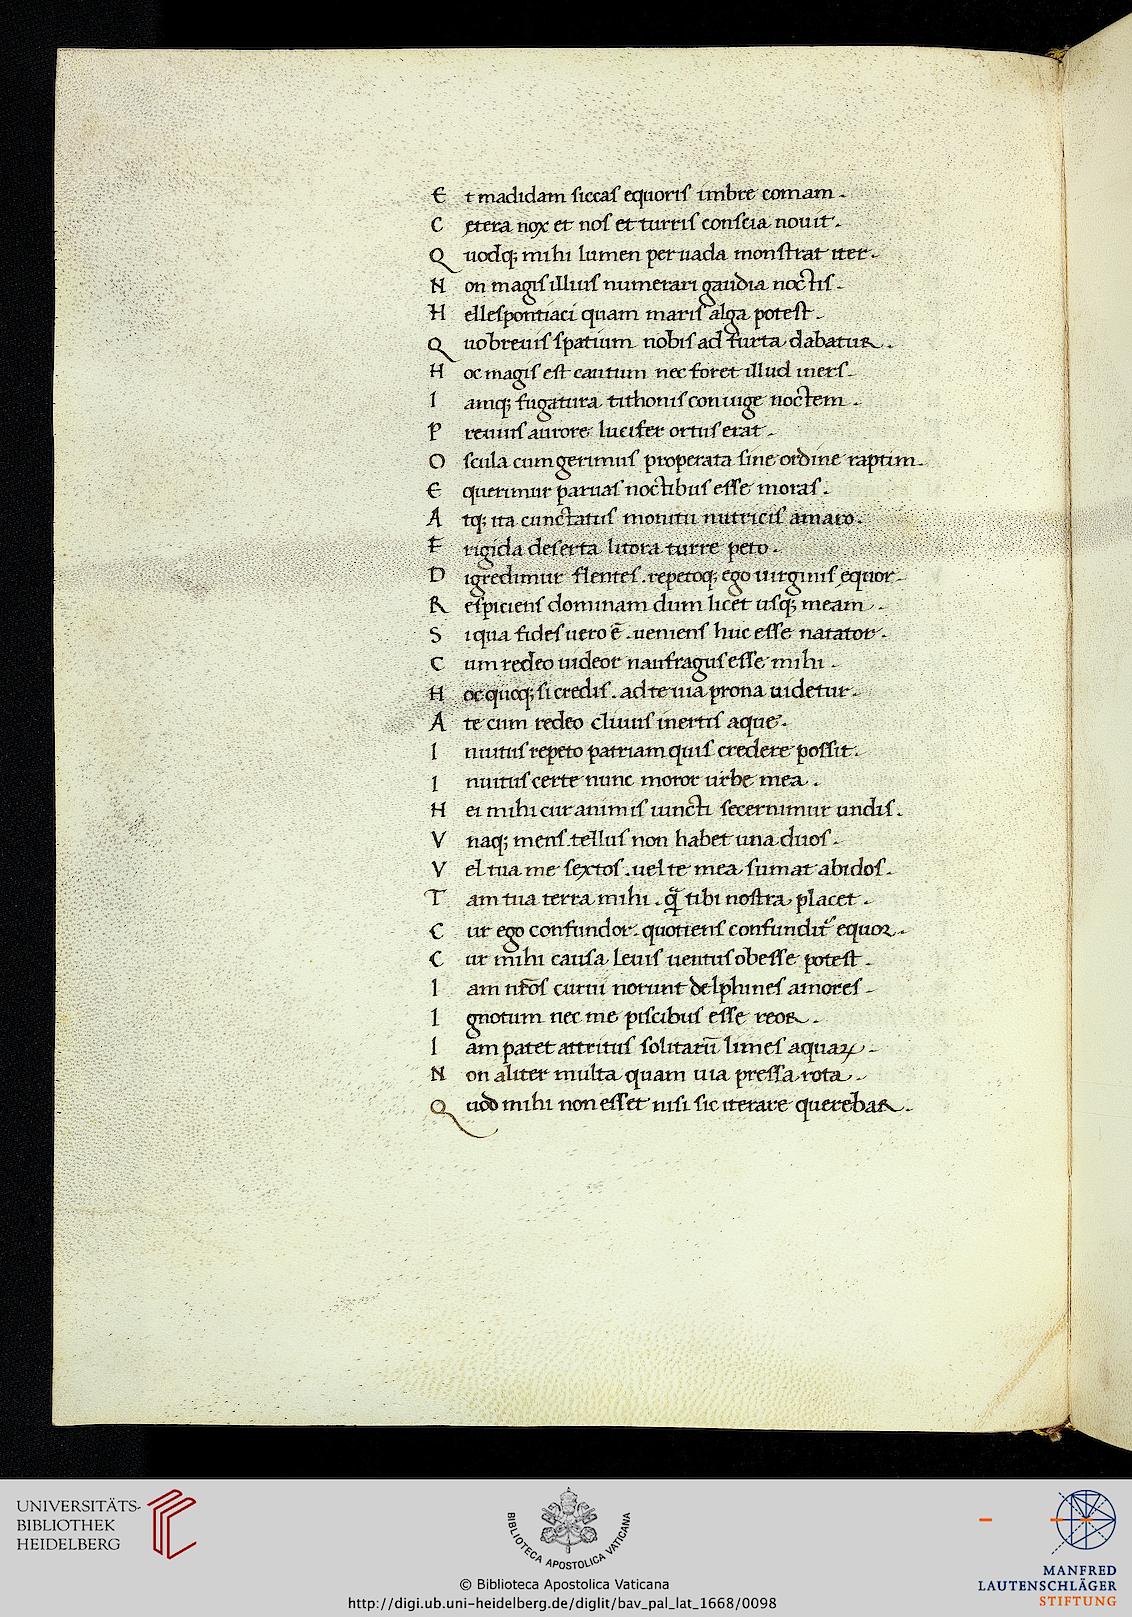 Et madidam siccas equoris imbre comam.
Cetera nox et nos et turris conscia nouit.
Quodq; mihi lumen per uada monstrat iter.
Non magis illius numerari gaudia noctis.
Hellespontiaci quam maris alga potest.
Quo breuius spatium nobis ad furta dabatur.
Hoc magis est cautum nec foret illud iners.
Iamq; fugatura tithonis coniuge noctem.
Preuius aurore lucifer ortus erat.
Oscula cum gerimus properata sine ordine raptim.
Equerimur paruas noctibus esse moras.
Atq; ita cunctatus monitu nutricis amaro.
Frigida deserta litora turre peto.
Digredimur flentes. repetoq; ego uirginis equor.
Respiciens dominam dum licet usq; meam.
Siqua fides uero ē. ueniens huc esse natator.
Cum redeo uideor naufragus esse mihi.
Hoc quoq; si credis. ad te uia prona uidetur.
A te cum redeo cliuus inertis aque.
Inuitus repeto patriam quis credere possit.
Inuitus certe nunc moror urbe mea.
Hei mihi cur animis iuncti secernimur undis.
Vnaq; mens. tellus non habet una duos.
Vel tua me sextos. uel te mea sumat abidos.
Tam tua terra mihi. q̃ tibi nostra placet.
Cur ego confundor. quotiens confundit᷒ equor.
Cur mihi causa leuis uentus obesse potest.
Iam nr̄os curui norunt delphines amores.
Ignotum nec me piscibus esse reor.
Iam patet attritus solitarū limes aquaꝝ.
Non aliter multa quam uia pressa rota.
Quod mihi non esset nisi sic iterare querebar.
UNIVERSITÄTS-
BIBLIOTHEK
HEIDELBERG
BIBLIOTECA APOSTOLICA VATICANA
MANFRED
LAUTENSCHLÄGER
STIFTUNG
© Biblioteca Apostolica Vaticana
http://digi.ub.uni-heidelberg.de/diglit/bav_pal_lat_1668/0098